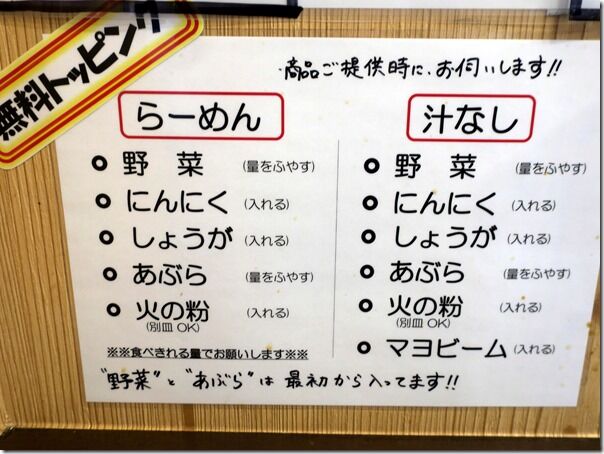 無料トッピング
・商品ご提供時に、お伺いします!!
らーめん
○ 野菜 (量をふやす)
○ にんにく (入れる)
○ しょうが (入れる)
○ あぶら (量をふやす)
○ 火の粉 (入れる)
(別皿 OK)
※※食べきれる量でお願いします※※
汁なし
○ 野菜 (量をふやす)
○ にんにく (入れる)
○ しょうが (入れる)
○ あぶら (量をふやす)
○ 火の粉 (入れる)
(別皿 OK)
○ マヨビーム (入れる)
"野菜"と"あぶら"は最初から入ってます!!